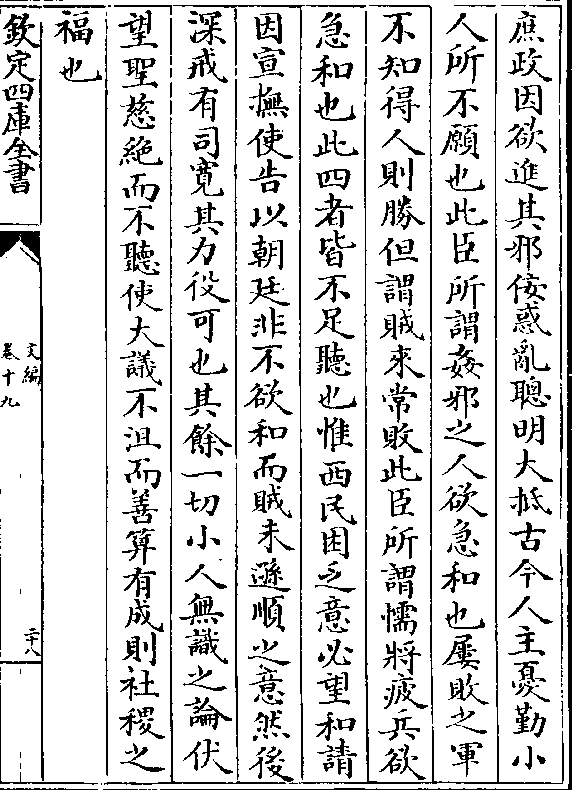 庶政因欲進其邪佞惑亂聰明大抵古今人主憂勤小
人所不願也此臣所謂姦邪之人欲急和也屢敗之軍
不知得人則勝但謂賊來常敗此臣所謂懦將疲兵欲
急和也此四者皆不足聽也惟西民困乏意必望和請
因宣撫使告以朝廷非不欲和而賊未遜順之意然後
深戒有司寛其力役可也其餘一切小人無識之論伏
望聖慈絶而不聽使大議不沮而善筭有成則社稷之
福也
欽定四庫全書
文編
卷十九
二十八